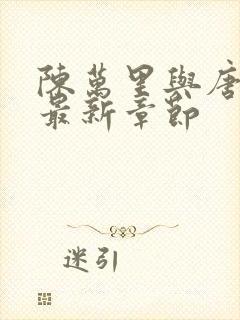 陳萬里與唐
最新章節
迷引